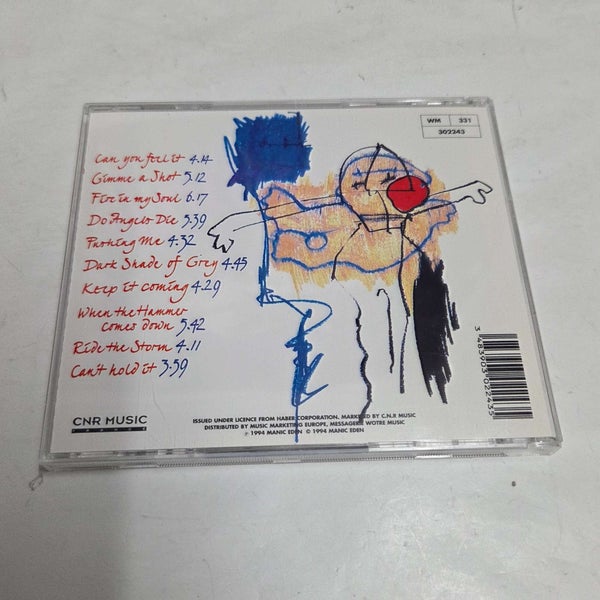 WM 331
302243
Can you feel it 4.14
Gimme a Shot 5.12
Fire in my Soul 6.17
Do Angels Die 5.39
Pushing Me 4.32
Dark Shade of Grey 4.45
Keep it coming 4.29
When the Hammer
comes down 5.42
Ride the Storm 4.11
Can't hold it 3:59
CNR MUSIC
FRANCE
ISSUED UNDER LICENCE FROM HABER CORPORATION, MARKETED BY C.N.R MUSIC
DISTRIBUTED BY MUSIC MARKETING EUROPE, MESSAGERIE WOTRE MUSIC
℗ 1994 MANIC EDEN © 1994 MANIC EDEN
3 483903 022435